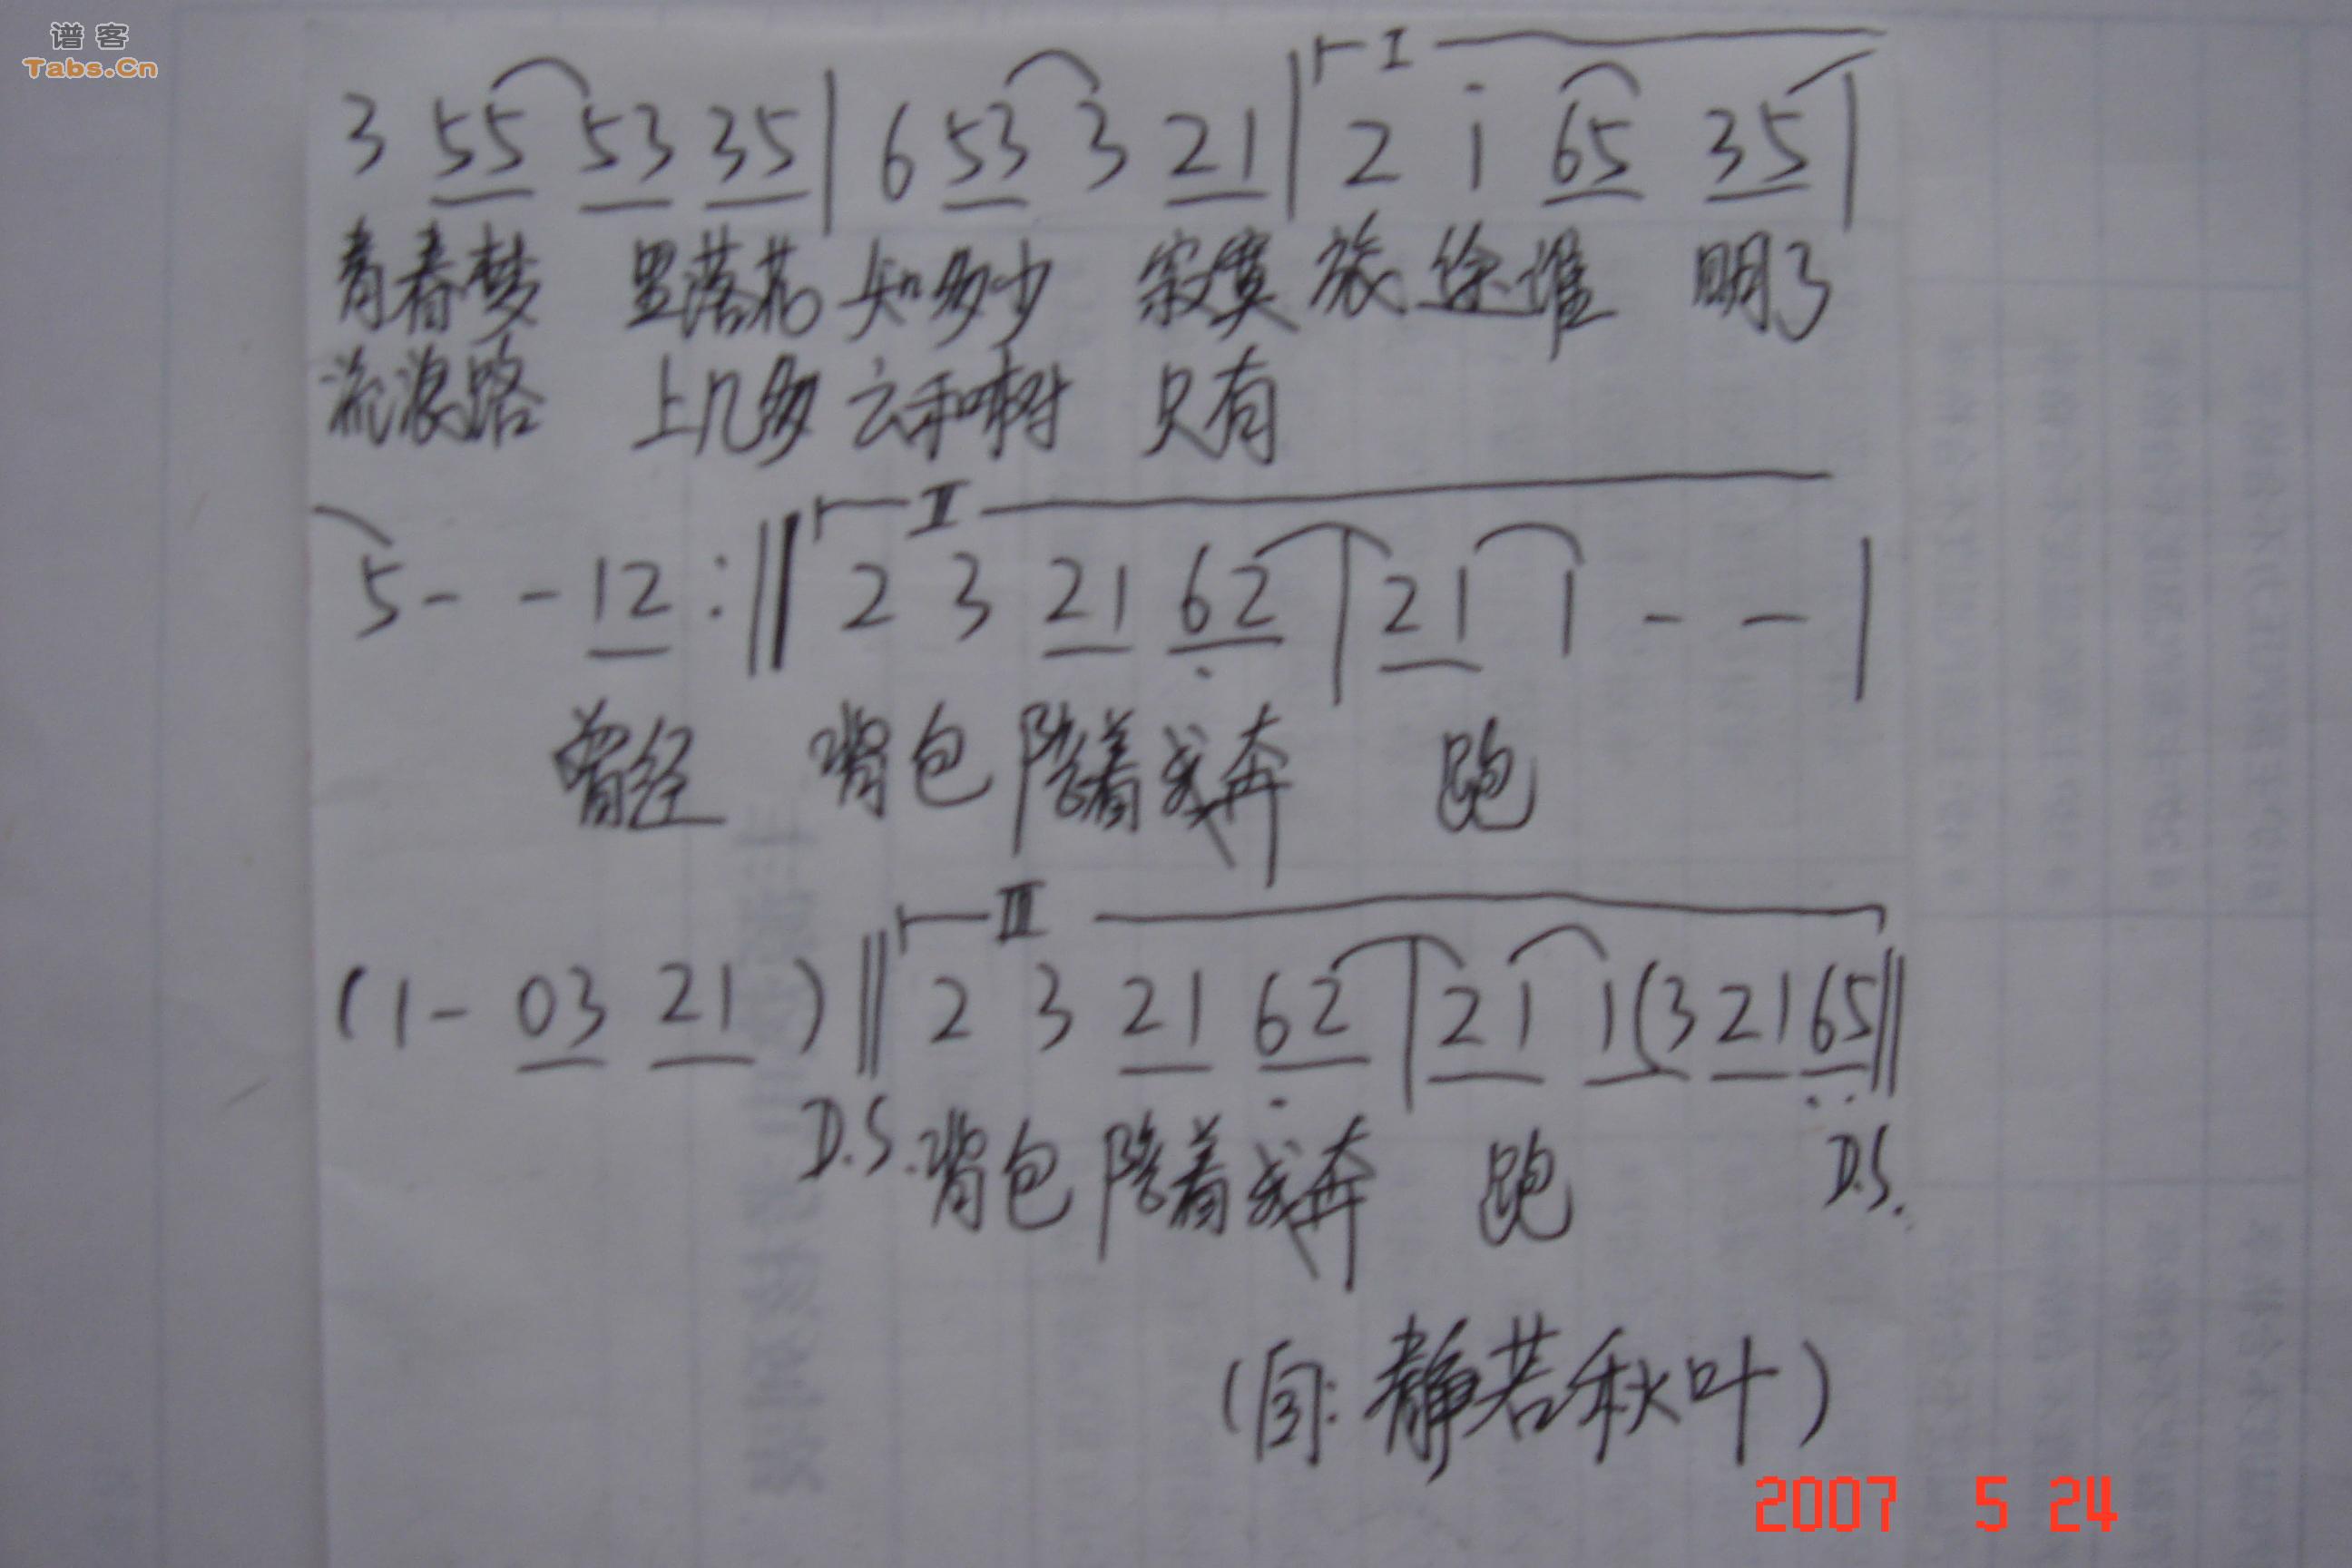 谱客
Tabs.Cn
I
3 55 53 35 | 6 53 3 21 | 2 i 65 35 |
青春梦 里落花 知多少 寂寞 旅途谁 明了
流浪路 上几多 云和树 只有
II
5 - - 12 :|| 2 3 21 62 | 21 1 - - |
曾经 背包 陪着我奔 跑
III
(1 - 03 21) || 2 3 21 62 | 21 1(3 21 65 ||
D.S. 背包 陪着我奔 跑 D.S.
(自:静若秋叶)
2007 5 24